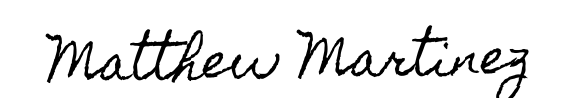 Matthew Martinez